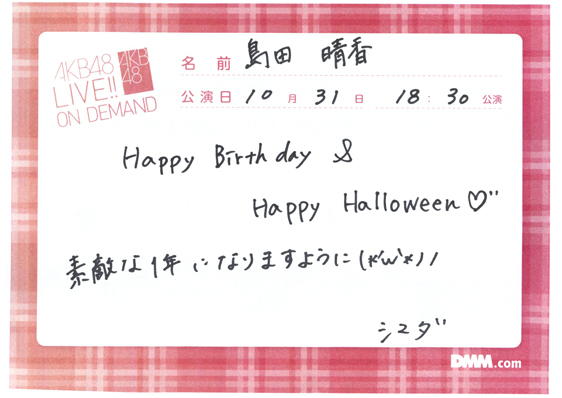 AKB48
LIVE!!
ON DEMAND
AKB
48
名前 島田 晴香
公演日 10月 31日 18:30 公演
Happy Birthday &
Happy Halloween♡"
素敵な1年になりますように(*'ω'*)ノ
シマダ"
DMM.com